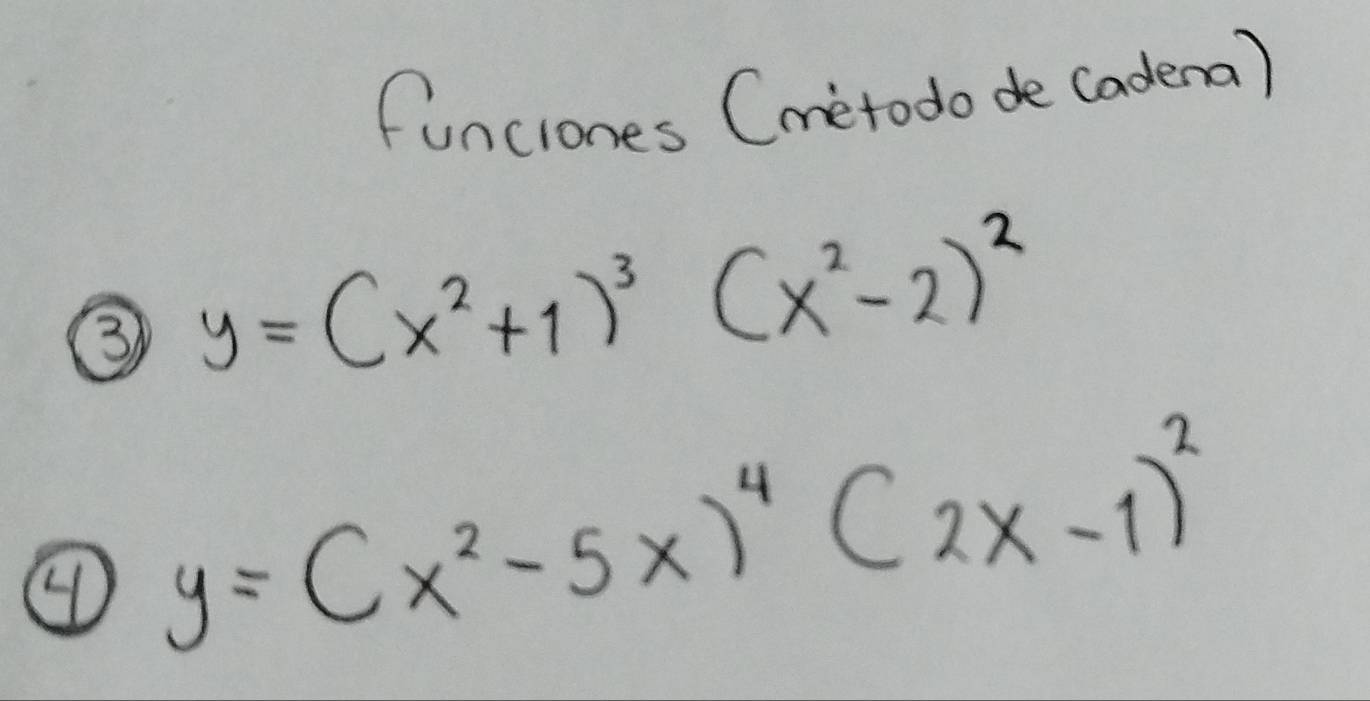 funciones (método de cadena)
③ y = (x²+1)³ (x²-2)²
④ y = (x²-5x)⁴ (2x-1)²